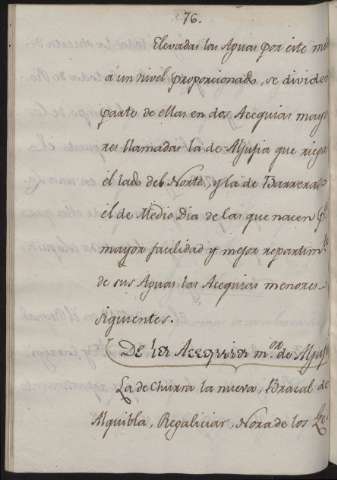 76.
Elevadas las Aguas por este me
á un nivel proporcionado, se divide
parte de ellas en dos Acequias mayo
res llamadas la de Aljufia que riega
el lado del Norte, y la de Barreras
el de Medio Dia de las que nacen pa
mayor facilidad y mejor repartimto
de sus Aguas las Acequias menores
siguientes.
De las Acequias mres de Aljufa
La de Churra la nueva, Brazal de
Alquibla, Regaliciar, Nora de los